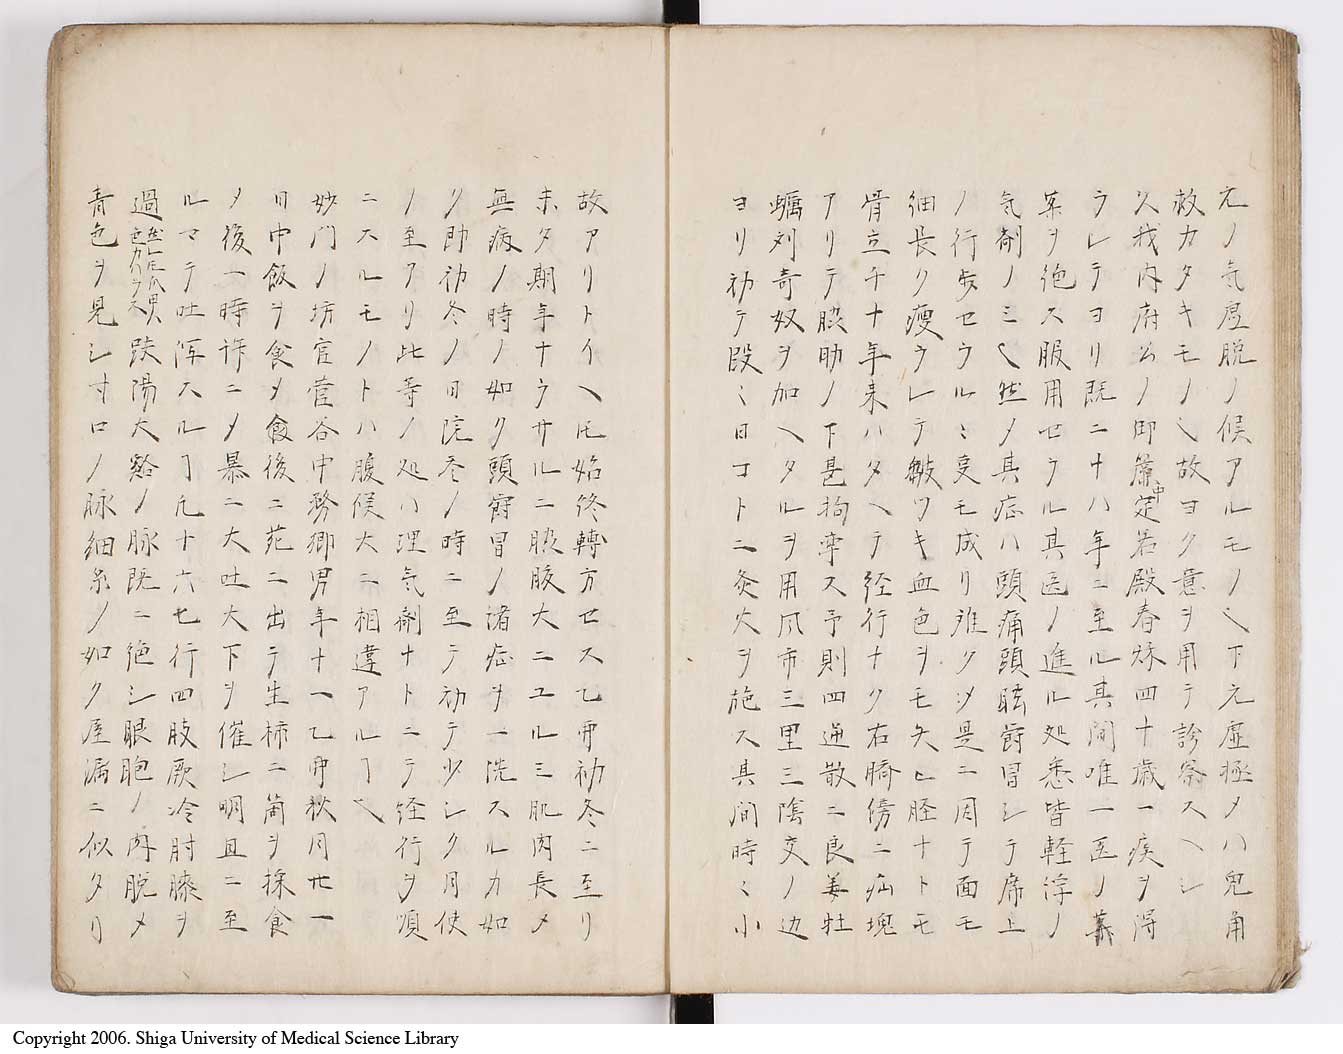 元ノ気虚脱ノ候アルモノヽ下元虚極メハ鬼角
救カタキモノヽ故ヨク意ヲ用テ診察スヘシ
久我内府公ノ御簾中定君殿春秋四十歳一疾ヲ得
ラレテヨリ既ニ十八年ニ至ル其間唯一医ノ
薬ヲ絶ス服用セラル其医ノ進ル処悉皆軽浮ノ
気剤ノミヽ然ノ其症ハ頭痛頭眩欝冒シテ席上
ノ行歩セラルヽ叓モ成リ難クソ是ニ因テ面モ
細長ク痩ラレテ皺ツキ血色ヲモ失ヒ脛ナトモ
骨立チ十年来ハタヘテ経行ナク右臍傍ニ疝塊
アリテ脇肋ノ下甚拘挛ス予則四逆散ニ良姜牡
蠣刘寄奴ヲ加ヘタルヲ用凬市三里三陰交ノ辺
ヨリ初テ段ミ日コトニ灸火ヲ施ス其間時ミ小
故アリトイヘ𪜈始終轉方セス乙卯初冬ニ至リ
未タ期年ナラサルニ股腋大ニユルミ肌肉長メ
無病ノ時ノ如ク頭欝冒ノ諸症ヲ一洗スルカ如
ク即初冬ノ日院参ノ時ニ至テ初テ少シク月使
ノ至アリ此等ノ処ハ理気剤ナトニテ経行ヲ順
ニスルモノトハ腹候大ニ相違アルヿヽ
妙門ノ坊官菅谷中務卿男年十一乙卯秋月廿一
日中飯ヲ食メ食後ニ苑ニ出テ生柿二箇ヲ採食
メ後一時許ニメ暴ニ大吐大下ヲ催シ明旦ニ至
ルマテ吐瀉スルヿ凢十六七行四肢厥冷肘膝ヲ
過然レ𪜈爪甲色カハラス趺陽大谿ノ脉既ニ絶シ眼胞ノ肉脱メ
青色ヲ見シ寸口ノ脉細糸ノ如ク屋漏ニ似タリ
Copyright 2006. Shiga University of Medical Science Library